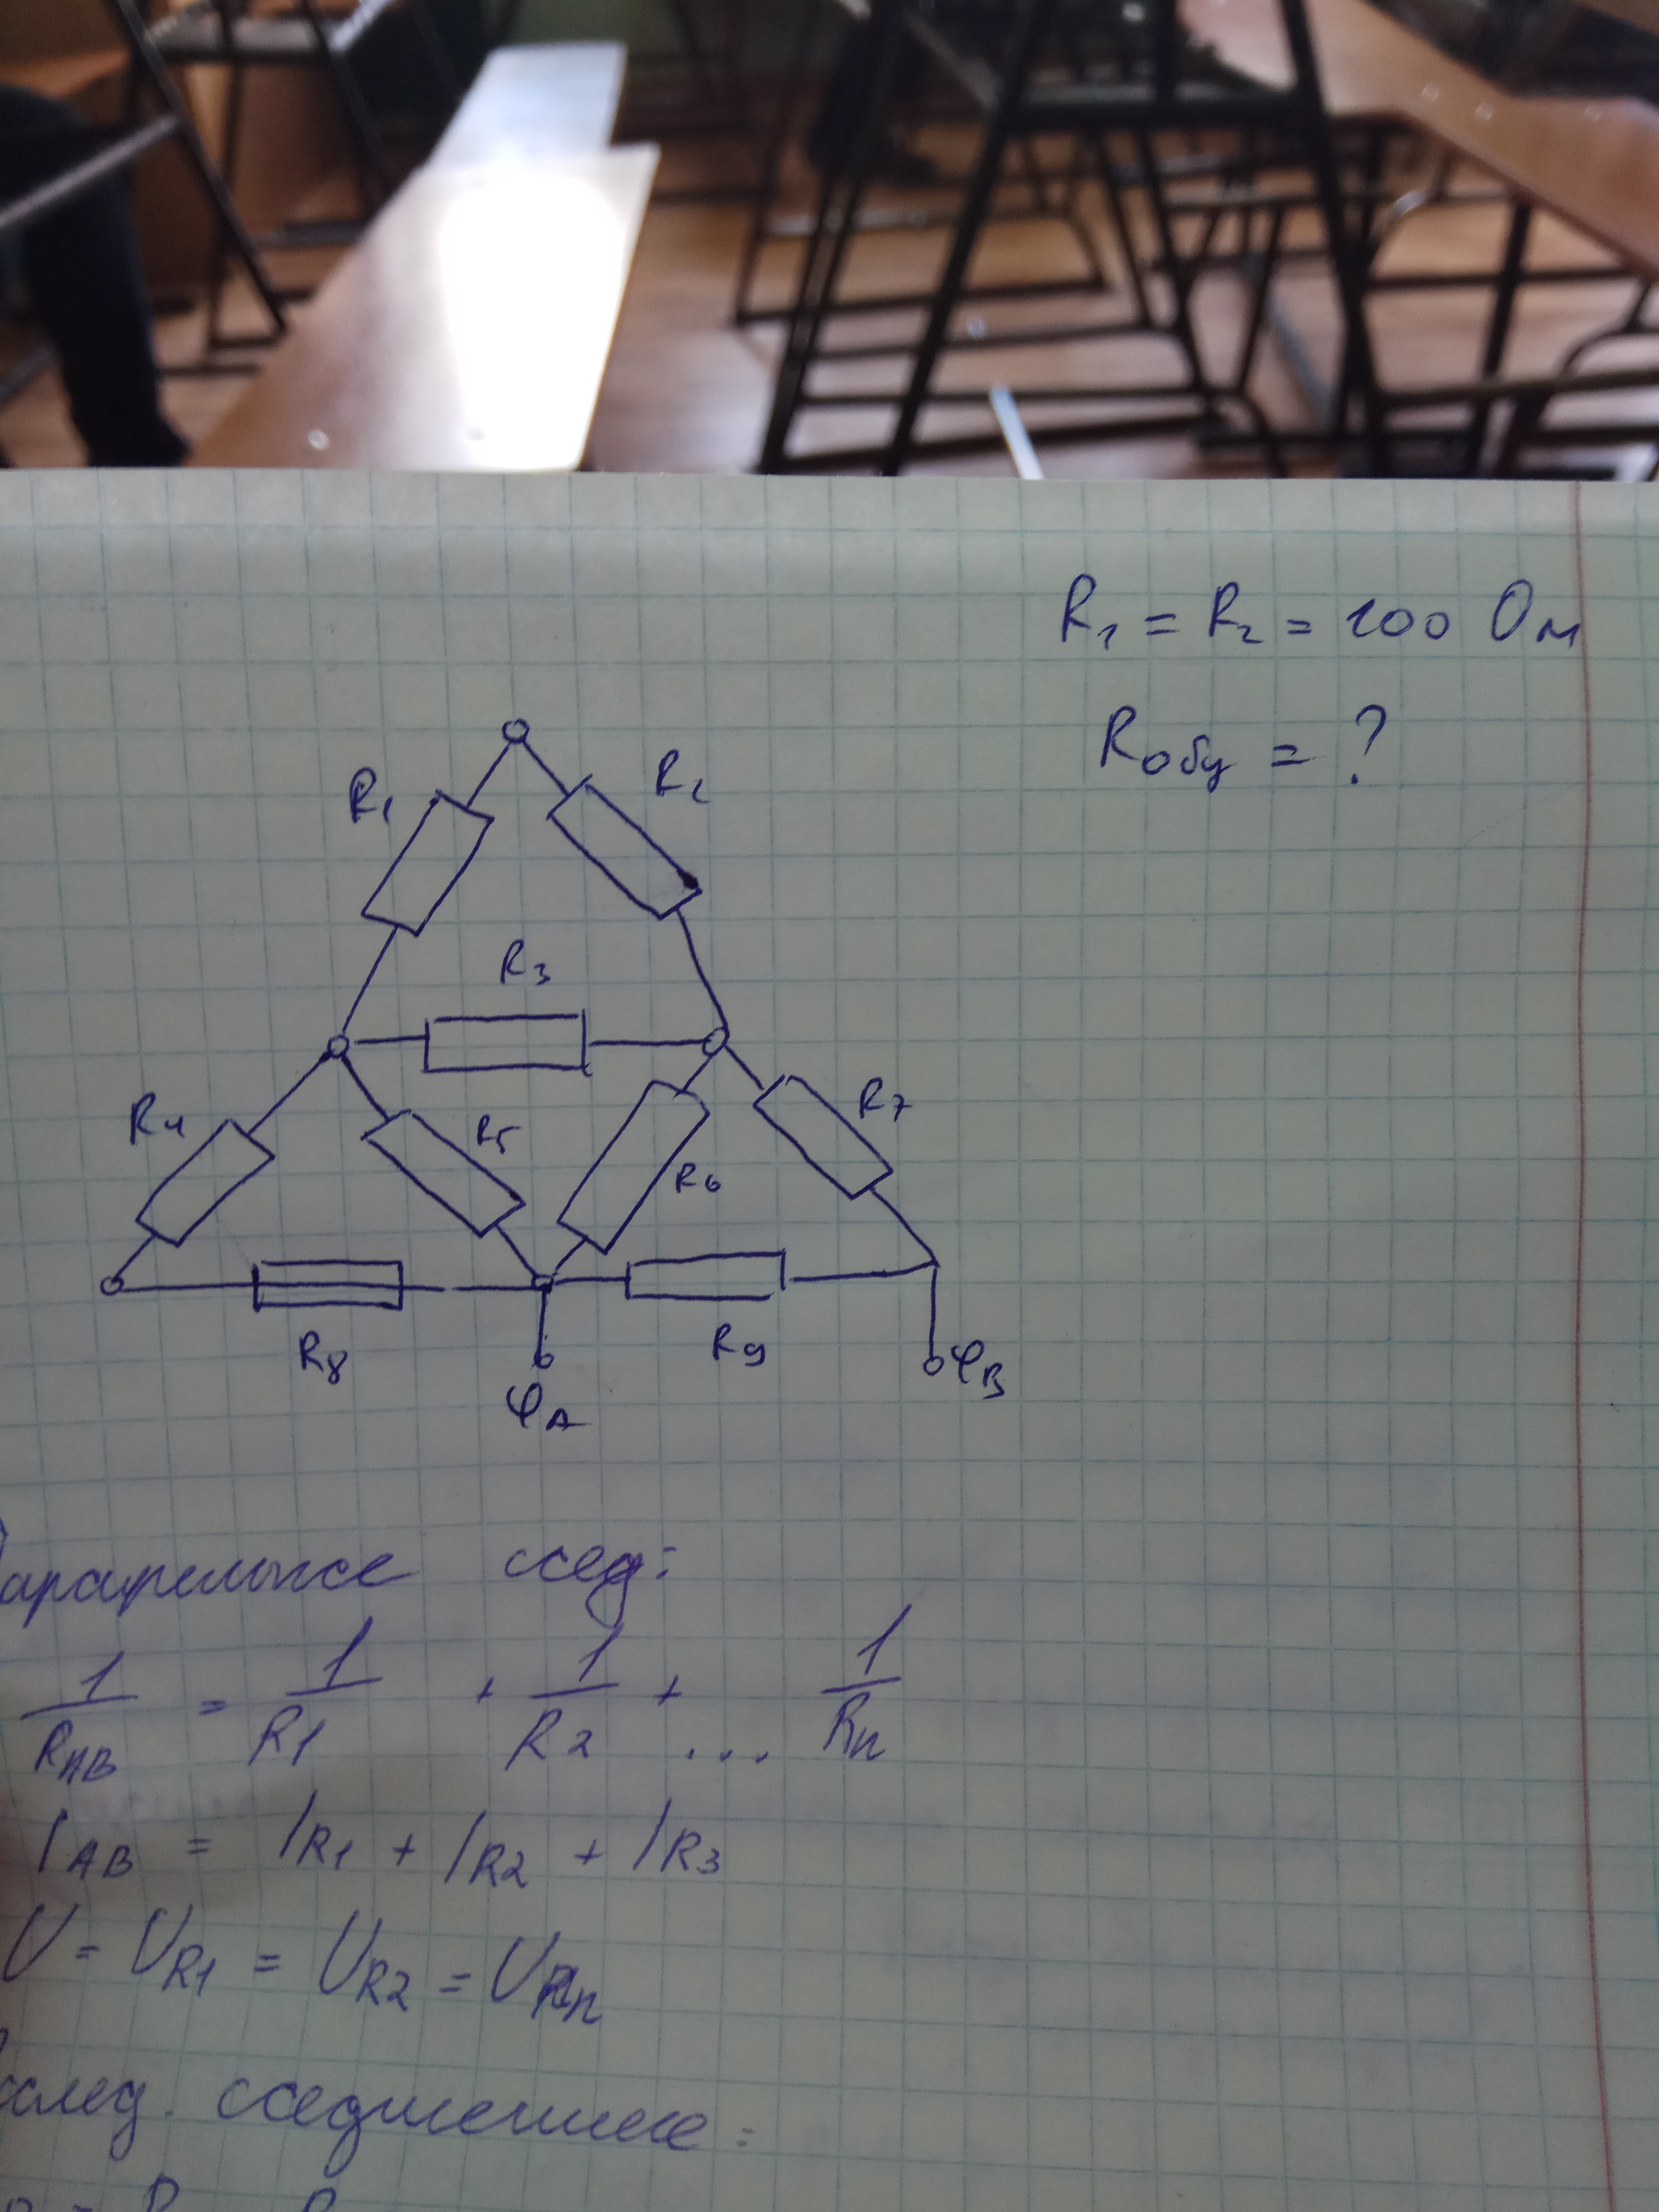 R₁ = R₂ = 100 Ом
Rобщ = ?
R₁
R₂
R₃
R₄
R₅
R₆
R₇
R₈
R₉
φA
φB
соед:
1/RAB = 1/R1 + 1/R2 + ... 1/Rn
IAB = IR1 + IR2 + IR3
U = UR1 = UR2 = URn
соединение: